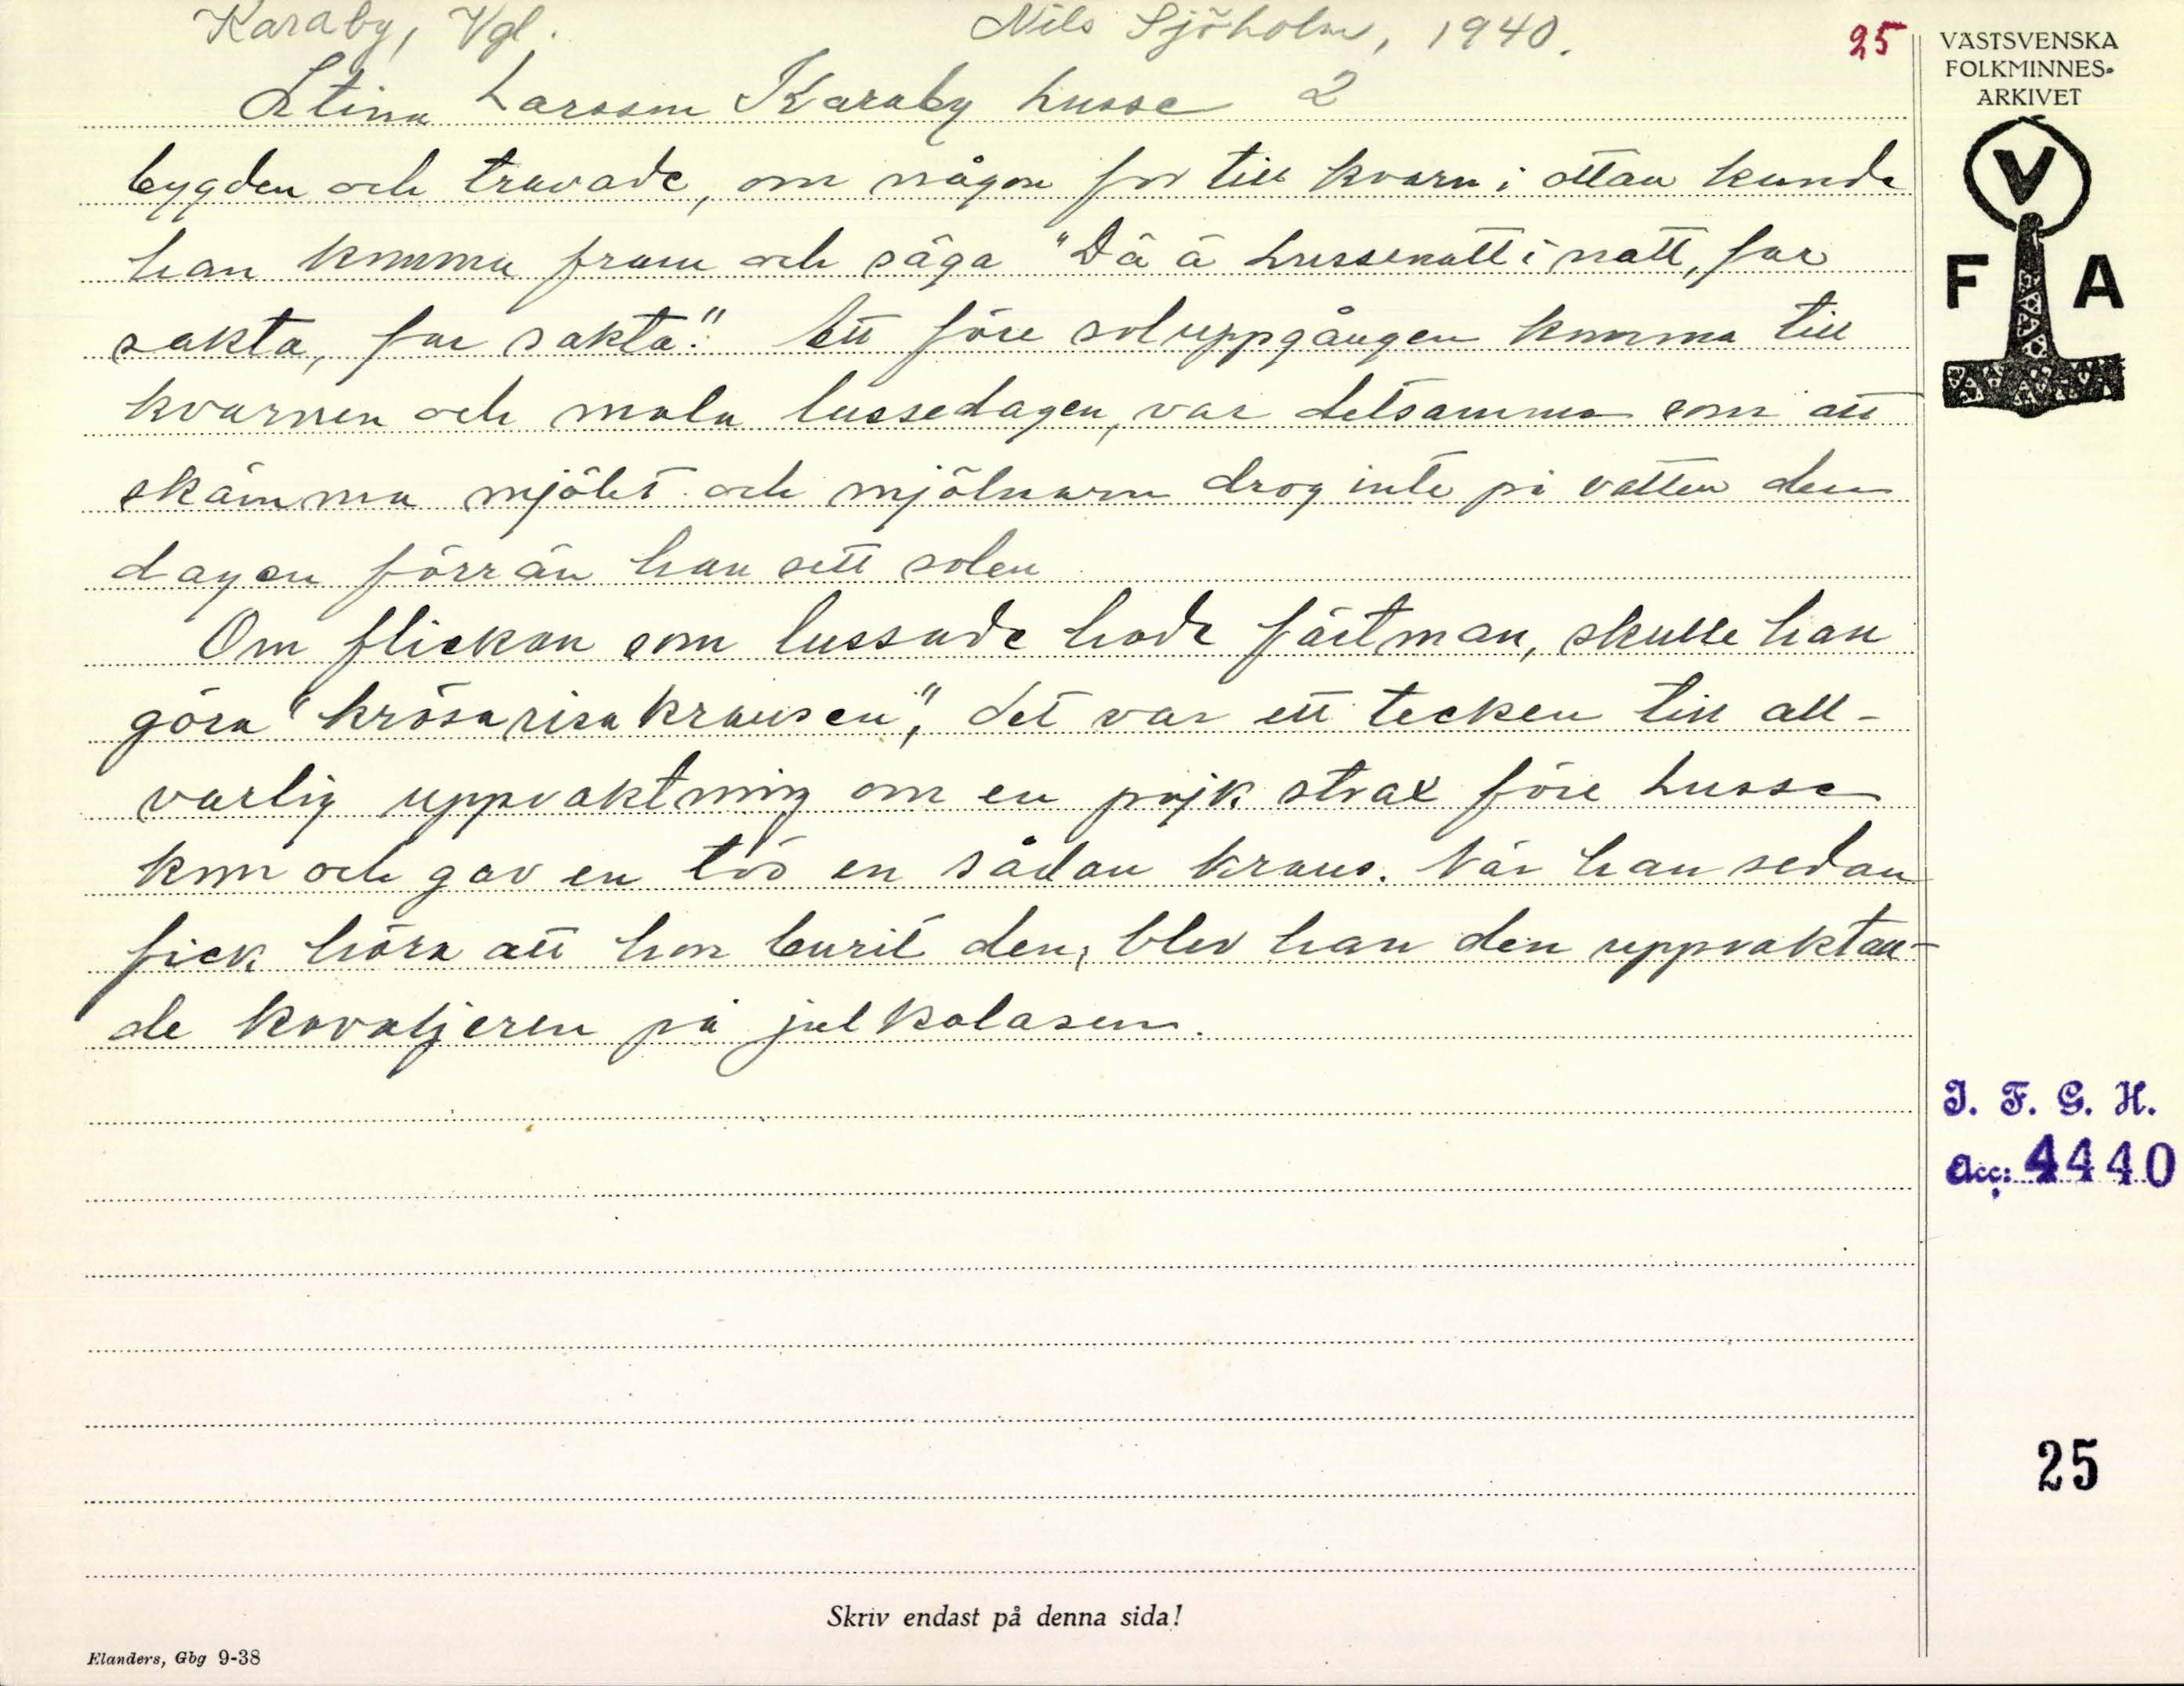 Karaby, Vgl.
Nils Sjöholm, 1940.
25
Stina Larsson Karaby Lusse 2
bygden och travade, om någon for till kvarn i ottan kunde
han komma fram och säga "Dä ä Lussenatt i natt, far
sakta, far sakta." Att före soluppgången komma till
kvarnen och mala lussedagen, var detsamma som att
skämma mjölet och mjölnarn drog inte på vatten den
dagen förrän han sett solen
Om flickan som lussade hade fästman, skulle han
göra "krösarisakransen", det var ett tecken till all-
varlig uppvaktning om en pojk strax före Lusse
kom och gav en tös en sådan krans. När han sedan
fick höra att hon burit den, blev han den uppvaktan-
de kavaljeren på julkalasen.
VÄSTSVENSKA
FOLKMINNES-
ARKIVET
V
F A
I. F. G. H.
Acc: 4440
25
Skriv endast på denna sida!
Elanders, Gbg 9-38